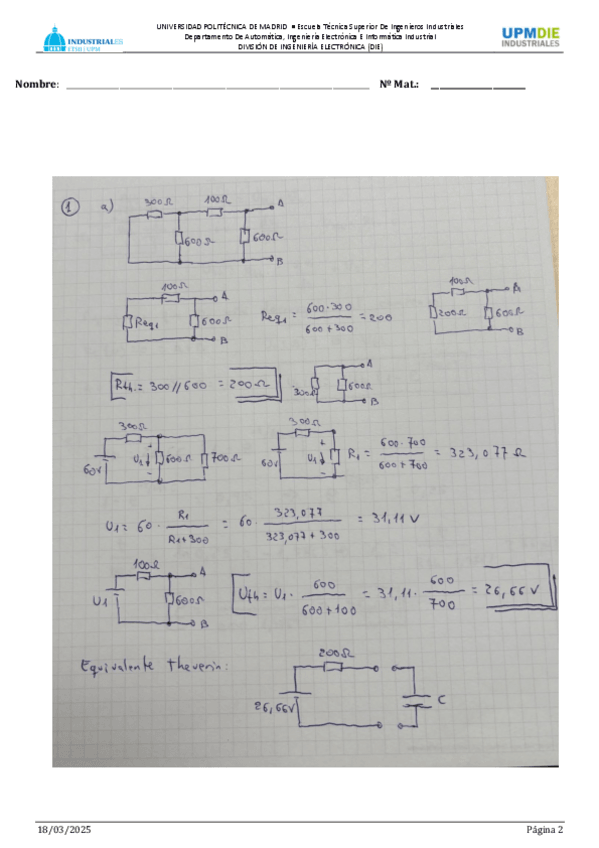 UNIVERSIDAD POLITÉCNICA DE MADRID • Escuela Técnica Superior De Ingenieros Industriales
Departamento De Automática, Ingeniería Electrónica E Informática Industrial
DIVISIÓN DE INGENIERÍA ELECTRÓNICA (DIE)
INDUSTRIALES
ETSII | UPM
UPMDIE
INDUSTRIALES
Nombre: Nº Mat.:
① a) 300Ω 100Ω A
600Ω 600Ω
B
100Ω A
Req1 600Ω
B
Req1 = 600·300 / 600+300 = 200
100Ω A
200Ω 600Ω
B
Rth. = 300//600 = 200Ω
A
300Ω 600Ω
B
300Ω
60V + U1 - 600Ω 700Ω
300Ω
60V + U1 - R1 = 600·700 / 600+700 = 323,077 Ω
U1 = 60 · R1 / R1+300 = 60 · 323,077 / 323,077+300 = 31,11 V
100Ω A
U1 600Ω
B
Uth. = U1 · 600 / 600+100 = 31,11 · 600 / 700 = 26,66 V
Equivalente thevenin:
200Ω
26,66V C
18/03/2025 Página 2